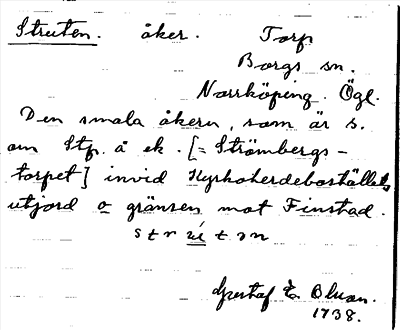 Struten. åker. Torp
Borgs sn.
Norrköping. Ögl.
Den smala åkern, som är s.
om Stp. å ek. [= Strömbergs-
torpet] invid Kyrkoherdebostället
utjord o gränsen mot Finstad.
s t r ú t ə n
Gustaf E. Olsson.
1938.